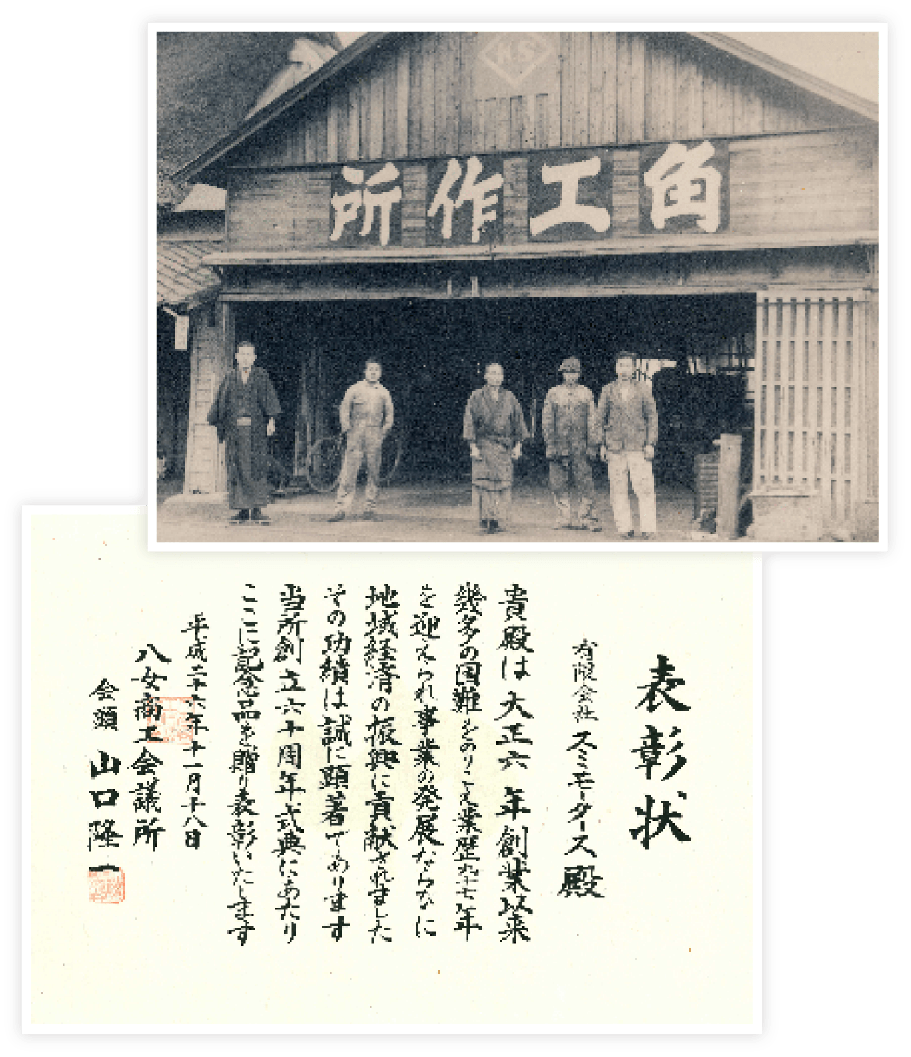 KS
角工作所
表彰状
有限会社 スミモータース 殿
貴殿は大正六年創業以来
幾多の国難をのりこえ業歴九十七年
を迎えられ事業の発展ならびに
地域経済の振興に貢献されました
その功績は誠に顕著であります
当所創立六十周年式典にあたり
ここに記念品を贈り表彰いたします
平成二十六年十一月十八日
八女商工会議所
会頭 山口隆一